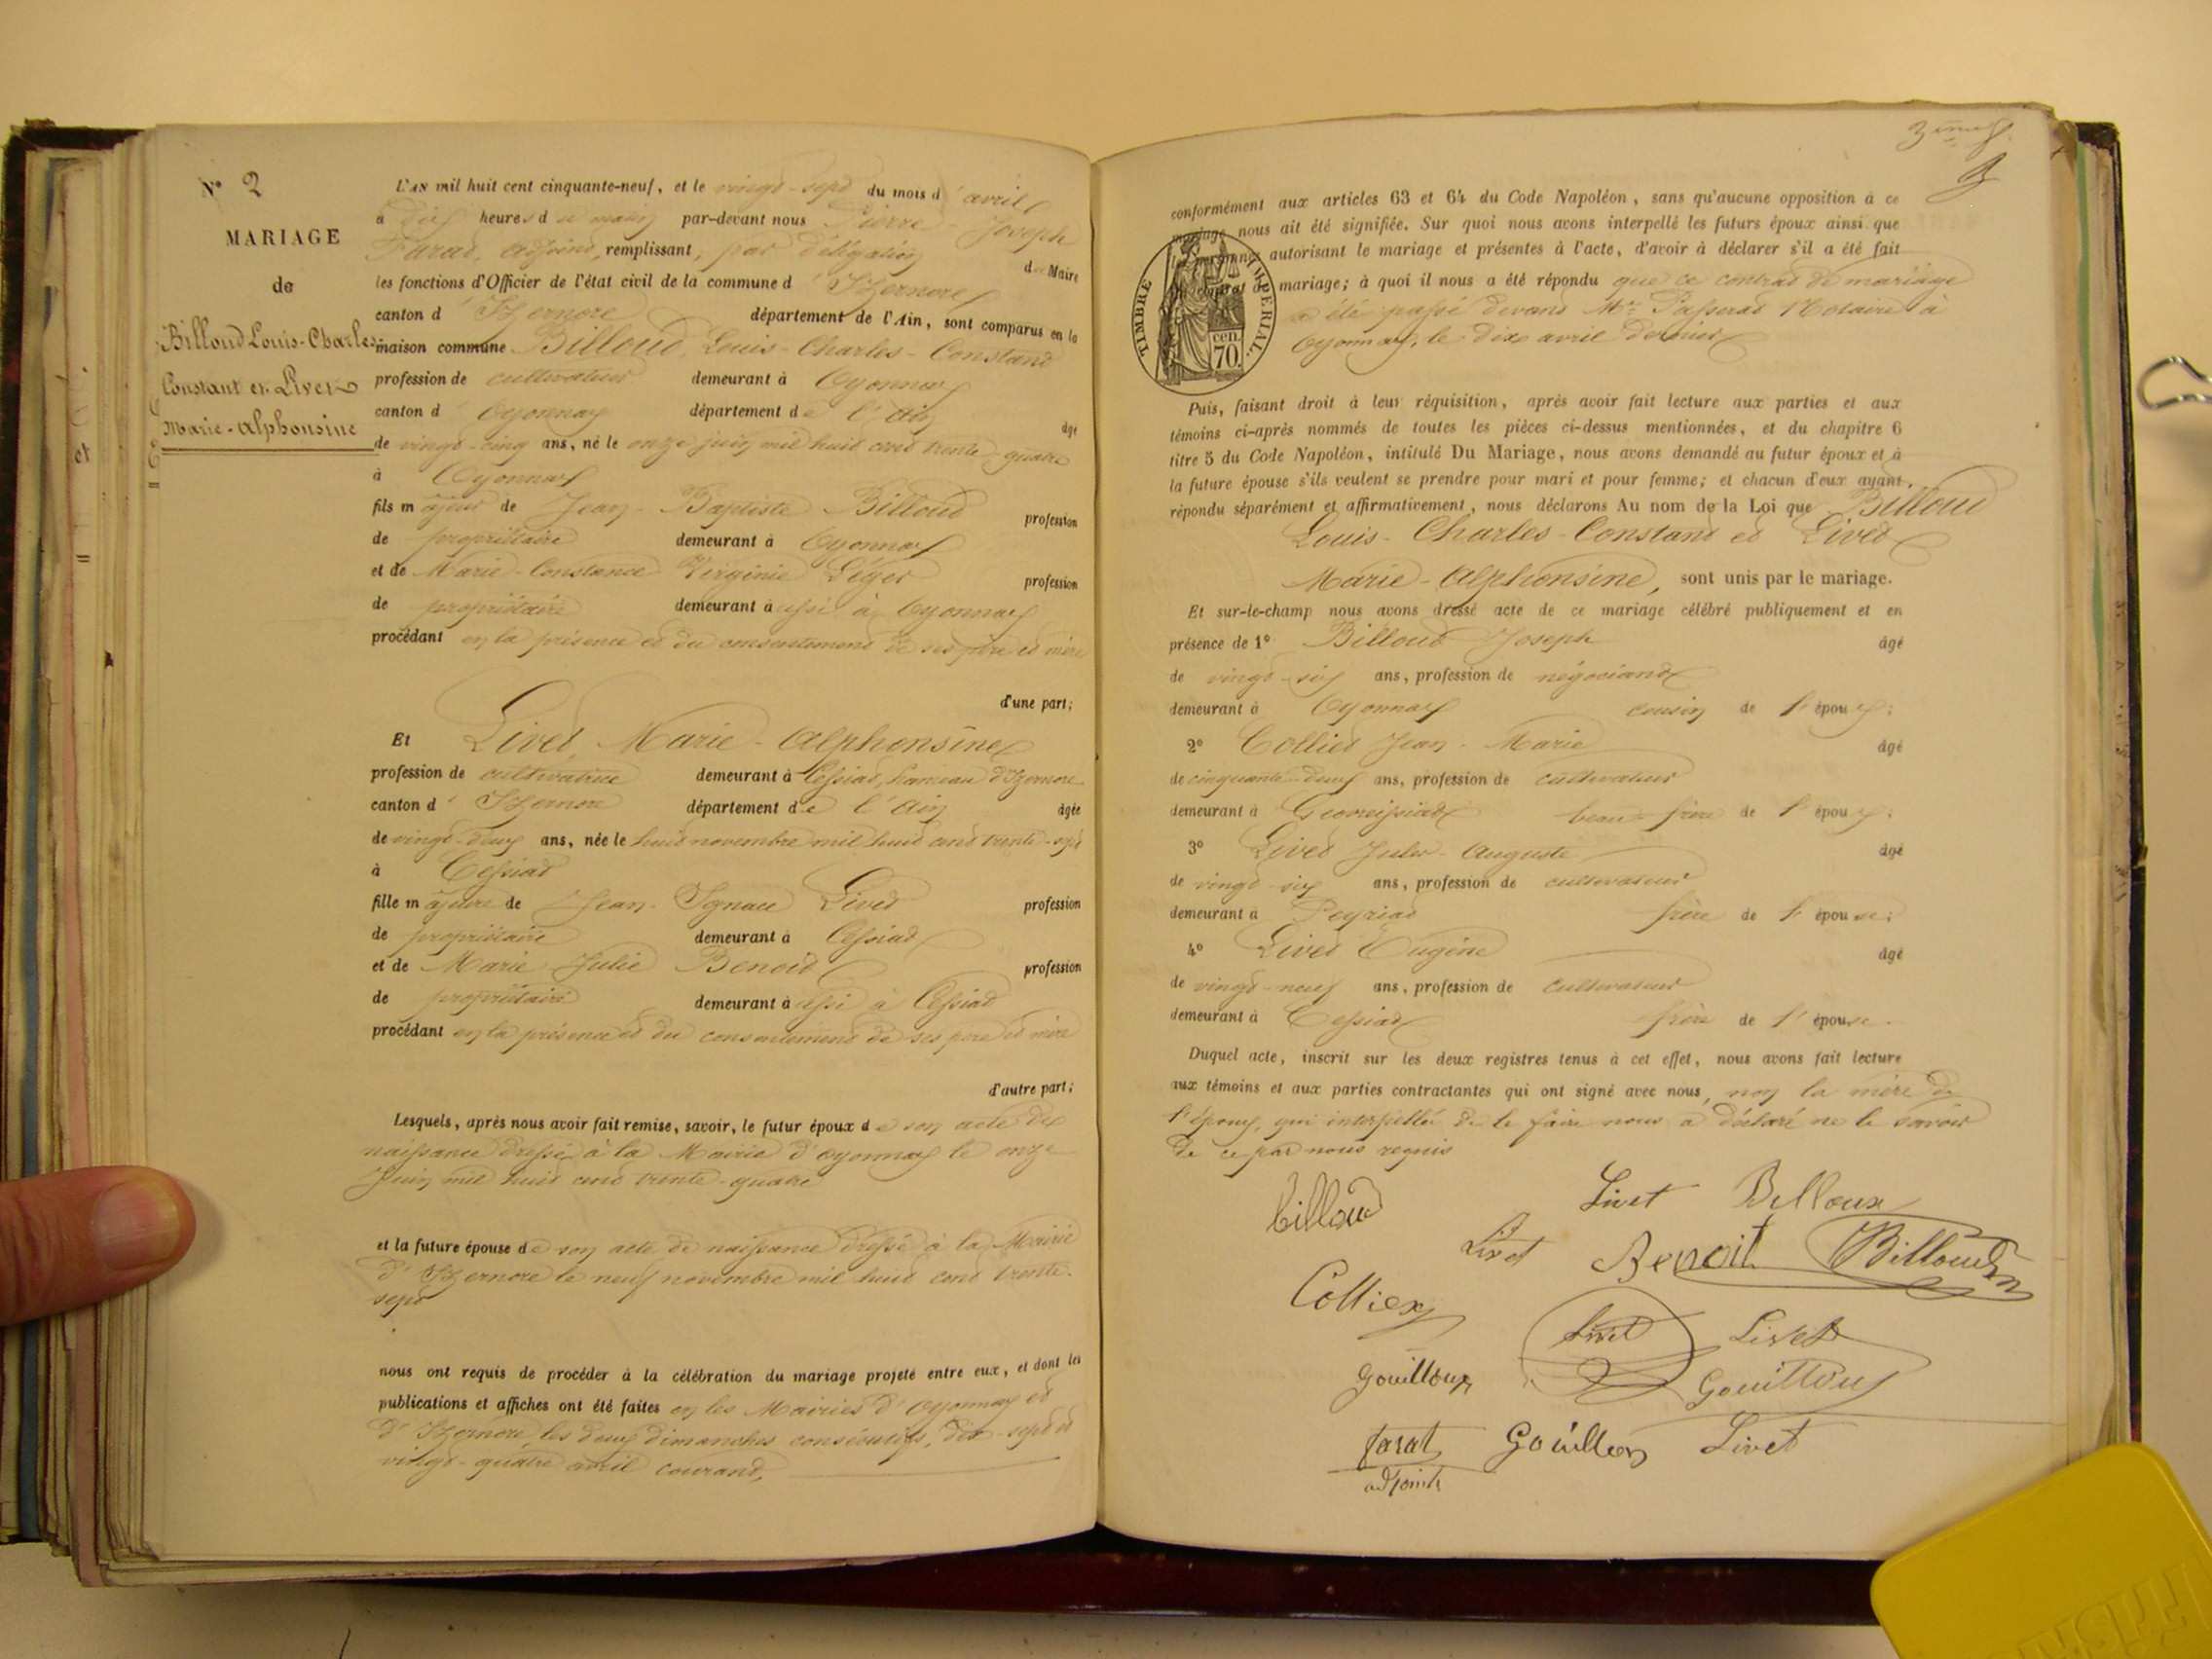 N° 2
MARIAGE
de
Billoud Louis-Charles
Constant et Livet
Marie-Alphonsine
L'AN mil huit cent cinquante-neuf, et le vingt-sept du mois d'avril
à dix heures du matin par-devant nous Pierre-Joseph
Farat, adjoint, remplissant, par délégation du Maire
les fonctions d'Officier de l'état civil de la commune d'Izernore
canton d'Izernore département de l'Ain, sont comparus en la
maison commune Billoud, Louis-Charles-Constant
profession de cultivateur demeurant à Oyonnax
canton d'Oyonnax département de l'Ain âgé
de vingt-cinq ans, né le onze juin mil huit cent trente-quatre
à Oyonnax
fils majeur de Jean-Baptiste Billoud profession
de propriétaire demeurant à Oyonnax
et de Marie-Constance Virginie Léger profession
de propriétaire demeurant aussi à Oyonnax
procédant en la présence et du consentement de ses père et mère
d'une part;
Et Livet, Marie-Alphonsine
profession de cultivatrice demeurant à Cessiat, hameau d'Izernore
canton d'Izernore département de l'Ain âgée
de vingt-deux ans, née le huit novembre mil huit cent trente-sept
à Cessiat
fille majeure de Jean-Ignace Livet profession
de propriétaire demeurant à Cessiat
et de Marie Julie Benoit profession
de propriétaire demeurant aussi à Cessiat
procédant en la présence et du consentement de ses père et mère
d'autre part;
Lesquels, après nous avoir fait remise, savoir, le futur époux de son acte de
naissance dressé à la Mairie d'Oyonnax le onze
Juin mil huit cent trente-quatre
et la future épouse de son acte de naissance dressé à la Mairie
d'Izernore le neuf novembre mil huit cent trente-
sept
nous ont requis de procéder à la célébration du mariage projeté entre eux, et dont les
publications et affiches ont été faites en les Mairies d'Oyonnax et
d'Izernore, les deux dimanches consécutifs, dix-sept et
vingt-quatre avril courant,
3
conformément aux articles 63 et 64 du Code Napoléon, sans qu'aucune opposition à ce
mariage nous ait été signifiée. Sur quoi nous avons interpellé les futurs époux ainsi que
autorisant le mariage et présentes à l'acte, d'avoir à déclarer s'il a été fait
mariage; à quoi il nous a été répondu que ce contrat de mariage
a été passé devant Me Passerat Notaire à
Oyonnax, le dix avril dernier
TIMBRE IMPERIAL.
cen.
70.
Puis, faisant droit à leur réquisition, après avoir fait lecture aux parties et aux
témoins ci-après nommés de toutes les pièces ci-dessus mentionnées, et du chapitre 6
titre 5 du Code Napoléon, intitulé Du Mariage, nous avons demandé au futur époux et à
la future épouse s'ils veulent se prendre pour mari et pour femme; et chacun d'eux ayant
répondu séparément et affirmativement, nous déclarons Au nom de la Loi que Billoud
Louis-Charles-Constant et Livet
Marie-Alphonsine, sont unis par le mariage.
Et sur-le-champ nous avons dressé acte de ce mariage célébré publiquement et en
présence de 1° Billoud Joseph âgé
de vingt-six ans, profession de négociant
demeurant à Oyonnax cousin de l'époux;
2° Colliex Jean-Marie âgé
de cinquante-deux ans, profession de cultivateur
demeurant à Geovreissiat beau-frère de l'époux;
3° Livet Jules-Auguste âgé
de vingt-six ans, profession de cultivateur
demeurant à Peyriat frère de l'épouse;
4° Livet Eugène âgé
de vingt-neuf ans, profession de cultivateur
demeurant à Cessiat frère de l'épouse.
Duquel acte, inscrit sur les deux registres tenus à cet effet, nous avons fait lecture
aux témoins et aux parties contractantes qui ont signé avec nous, non la mère de
l'époux, qui interpellée de le faire nous a déclaré ne le savoir
de ce par nous requis
billoud Livet Billoux
Livet Benoit Billoud
Colliex Livet Livet
Gouilloux Gouilloux
farat Gouilloux Livet
adjoint